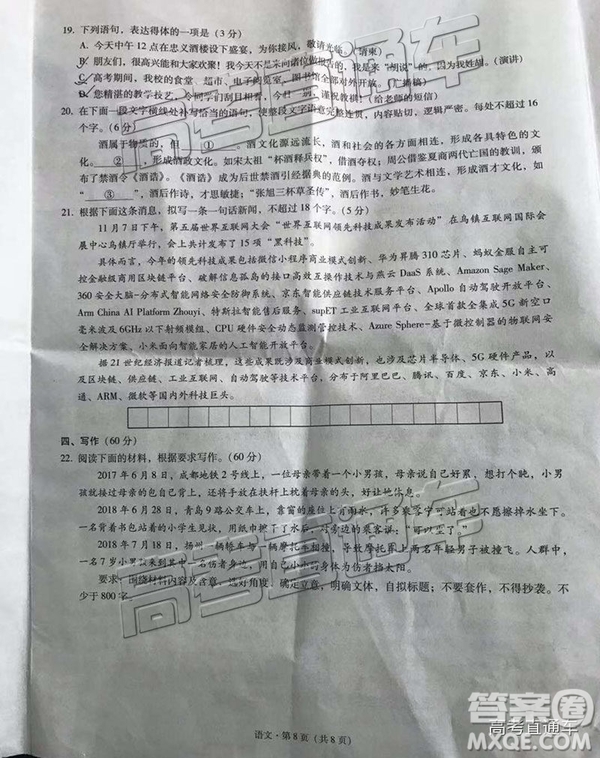 19. 下列语句，表达得体的一项是（3 分）
A. 今天中午 12 点在忠义酒楼设下盛宴，为你接风，敬请光临。（请柬）
B. 朋友们，很高兴能和大家一起聊天。我今天不是来向诸位做报告的，“我不敢”，因为我姓胡。（演讲）
C. 高考期间，我校的食堂、超市、电子阅览室、图书馆全部对外开放。（广播稿）
D. 您精湛的教学技艺，令同学们刮目相看，今
20. 在下面一段文字横线处补写恰当的语句，使整段文字语意完整连贯，内容贴切，逻辑严密。每处不超过 16
个字。（6 分）
酒属于物质的，但 ① 。酒文化源远流长，酒和社会的各各方面相结合，形成各具特色的文
化。 ② ，形成酒政文化。如宋太祖“杯酒释兵权”，借酒夺权；周公借鉴夏商两代亡国的教训，颁
布了禁酒令《酒诰》。《酒诰》成为后世禁酒引经据典的范例。酒与文学艺术相结合，形成酒艺文化。如
“ ③ ”，酒后作诗，才思敏捷；“张旭三杯草圣传”，酒后作书，妙笔生花。
21. 根据下面这条消息，拟写一条一句话新闻，不超过 18 个字。（5 分）
11 月 7 日下午，第五届世界互联网大会“世界互联网领先科技成果发布活动”在乌镇互联网国际会
展中心乌镇厅举行，会上共计发布了 15 项“黑科技”。
具体而言，今年的领先科技成果包括微信小程序商业模式创新、华为昇腾 310 芯片、蚂蚁金服自主可
控金融级商用区块链平台、破解信息孤岛的接口高效互操作技术与燕云 DaaS 系统、Amazon Sage Maker、
360 安全大脑-分布式智能网络安全防御系统、京东智能供应链技术服务平台、Apollo 自动驾驶开放平台、
Arm China AI Platform Zhouyi、特斯拉智能售后服务、supET 工业互联网平台、全球首款全集成 5G 新空口
毫米波及 6GHz 以下射频模组、CPU 硬件安全动态监测管控技术、Azure Sphere-基于微控制器的物联网安
全解决方案、小米面向智能家居的人工智能开放平台。
据 21 世纪经济报道记者梳理，这些成果既涉及商业模式创新，也涉及芯片半导体、5G 硬件产品，以
及区块链、供应链、工业互联网、自动驾驶等技术平台，分布于阿里巴巴、腾讯、百度、京东、小米、高
通、ARM、微软等国内外科技巨头。
四、写作（60 分）
22. 阅读下面的材料，根据要求写作。（60 分）
2017 年 6 月 8 日，成都地铁 2 号线上，一位母亲带着一个小男孩，母亲说自己好累，想打个盹，小男
孩就一手揽着母亲的头，一手放在扶杆上枕着母亲的头，好让她休息。
2018 年 6 月 28 日，青岛 9 路公交车上，靠窗的座位上有雨水，许多乘客宁可站着也不愿擦掉水坐下，
一名背着书包站着的小学生见状，用纸巾擦了水后，对旁边的乘客说：“可以坐了”。
2018 年 7 月 18 日，扬州，一辆轿车与一辆摩托车相撞，导致摩托车上两名年轻男子被撞飞。人群中，
一名 7 岁小男孩来到其中一名伤者身边，用自己小小的身体为伤者挡太阳。
要求：围绕材料内容及含意，选好角度，确定立意，明确文体，自拟标题；不要套作，不得抄袭。不
少于 800 字。
语文·第 8 页（共 8 页）
高考直通车
答案圈
高考直通车
MXQE.COM